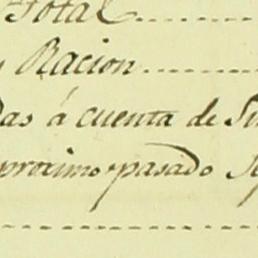 Total
Racion
das á cuenta de
proximo pasado